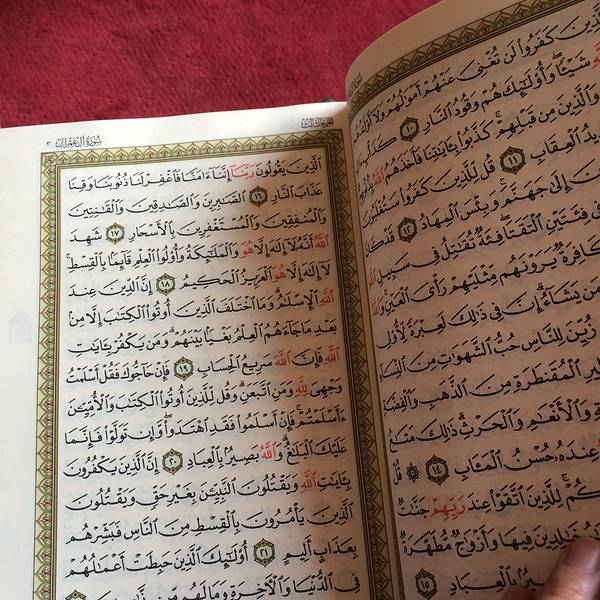 ٱلَّذِينَ كَفَرُوا۟ لَن تُغْنِىَ عَنْهُمْ أَمْوَٰلُهُمْ وَلَآ
شَيْـًٔا ۖ وَأُو۟لَٰٓئِكَ هُمْ وَقُودُ ٱلنَّارِ ١٠ كَدَأْبِ
وَٱلَّذِينَ مِن قَبْلِهِمْ ۚ كَذَّبُوا۟ بِـَٔايَٰتِنَا فَأَخَذَهُمُ ٱللَّهُ
ٱلْعِقَابِ ١١ قُل لِّلَّذِينَ كَفَرُوا۟ سَتُغْلَبُونَ
إِلَىٰ جَهَنَّمَ ۚ وَبِئْسَ ٱلْمِهَادُ ١٢ قَدْ كَانَ
فِى فِئَتَيْنِ ٱلْتَقَتَا ۖ فِئَةٌ تُقَٰتِلُ فِى سَبِيلِ ٱللَّهِ
كَافِرَةٌ يَرَوْنَهُم مِّثْلَيْهِمْ رَأْىَ ٱلْعَيْنِ ۚ وَٱللَّهُ
مَن يَشَآءُ ۗ إِنَّ فِى ذَٰلِكَ لَعِبْرَةً لِّأُو۟لِى
زُيِّنَ لِلنَّاسِ حُبُّ ٱلشَّهَوَٰتِ مِنَ ٱلنِّسَآءِ
ٱلْمُقَنطَرَةِ مِنَ ٱلذَّهَبِ وَٱلْفِضَّةِ
وَٱلْأَنْعَٰمِ وَٱلْحَرْثِ ۗ ذَٰلِكَ مَتَٰعُ
عِندَهُۥ حُسْنُ ٱلْمَـَٔابِ ١٤ ۞ قُلْ
لِلَّذِينَ ٱتَّقَوْا۟ عِندَ رَبِّهِمْ جَنَّٰتٌ
خَٰلِدِينَ فِيهَا وَأَزْوَٰجٌ مُّطَهَّرَةٌ
بِٱلْعِبَادِ ١٥
سُورَةُ آلِ عِمْرَان ٣
ٱلَّذِينَ يَقُولُونَ رَبَّنَآ إِنَّنَآ ءَامَنَّا فَٱغْفِرْ لَنَا ذُنُوبَنَا وَقِنَا
عَذَابَ ٱلنَّارِ ١٦ ٱلصَّٰبِرِينَ وَٱلصَّٰدِقِينَ وَٱلْقَٰنِتِينَ
وَٱلْمُنفِقِينَ وَٱلْمُسْتَغْفِرِينَ بِٱلْأَسْحَارِ ١٧ شَهِدَ
ٱللَّهُ أَنَّهُۥ لَآ إِلَٰهَ إِلَّا هُوَ وَٱلْمَلَٰٓئِكَةُ وَأُو۟لُوا۟ ٱلْعِلْمِ قَآئِمًۢا بِٱلْقِسْطِ ۚ
لَآ إِلَٰهَ إِلَّا هُوَ ٱلْعَزِيزُ ٱلْحَكِيمُ ١٨ إِنَّ ٱلدِّينَ عِندَ
ٱللَّهِ ٱلْإِسْلَٰمُ ۗ وَمَا ٱخْتَلَفَ ٱلَّذِينَ أُوتُوا۟ ٱلْكِتَٰبَ إِلَّا مِنۢ
بَعْدِ مَا جَآءَهُمُ ٱلْعِلْمُ بَغْيًۢا بَيْنَهُمْ ۗ وَمَن يَكْفُرْ بِـَٔايَٰتِ
ٱللَّهِ فَإِنَّ ٱللَّهَ سَرِيعُ ٱلْحِسَابِ ١٩ فَإِنْ حَآجُّوكَ فَقُلْ أَسْلَمْتُ
وَجْهِىَ لِلَّهِ وَمَنِ ٱتَّبَعَنِ ۗ وَقُل لِّلَّذِينَ أُوتُوا۟ ٱلْكِتَٰبَ وَٱلْأُمِّيِّـۧنَ
ءَأَسْلَمْتُمْ ۚ فَإِنْ أَسْلَمُوا۟ فَقَدِ ٱهْتَدَوا۟ ۖ وَّإِن تَوَلَّوْا۟ فَإِنَّمَا
عَلَيْكَ ٱلْبَلَٰغُ ۗ وَٱللَّهُ بَصِيرٌۢ بِٱلْعِبَادِ ٢٠ إِنَّ ٱلَّذِينَ يَكْفُرُونَ
بِـَٔايَٰتِ ٱللَّهِ وَيَقْتُلُونَ ٱلنَّبِيِّـۧنَ بِغَيْرِ حَقٍّ وَيَقْتُلُونَ
ٱلَّذِينَ يَأْمُرُونَ بِٱلْقِسْطِ مِنَ ٱلنَّاسِ فَبَشِّرْهُم
بِعَذَابٍ أَلِيمٍ ٢١ أُو۟لَٰٓئِكَ ٱلَّذِينَ حَبِطَتْ أَعْمَٰلُهُمْ
فِى ٱلدُّنْيَا وَٱلْءَاخِرَةِ وَمَا لَهُم مِّن